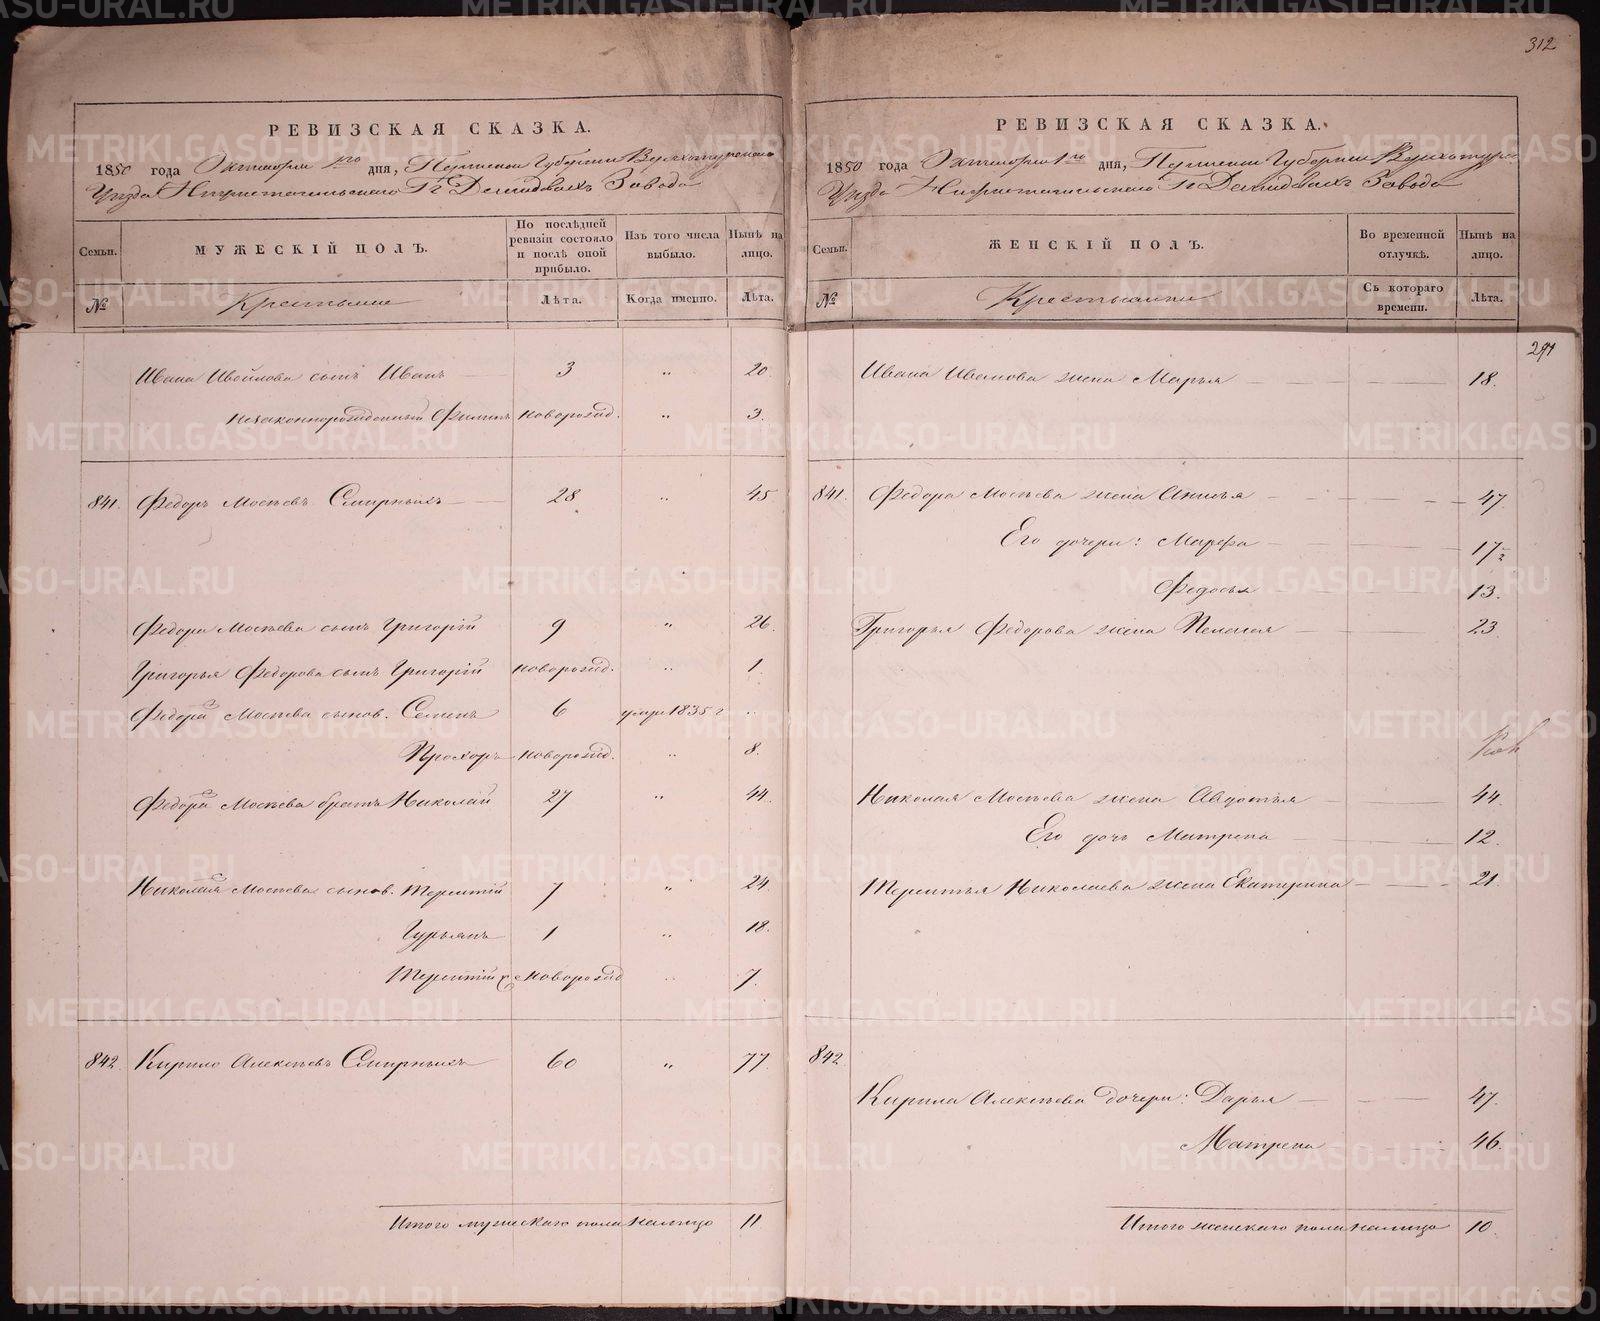 312
РЕВИЗСКАЯ СКАЗКА.
1850 года Октября 1го дня, Пермской Губернии Верхотурскаго
Уѣзда Нижнетагильскаго Гг Демидовыхъ Завода
Семьи. МУЖЕСКІЙ ПОЛЪ. По послѣдней ревизіи состояло и послѣ оной прибыло. Изъ того числа выбыло. Нынѣ на лицо.
№ Крестьяне Лѣта. Когда именно. Лѣта.
Ивана Иванъ 3 „ 20.
незаконнорожденный Филипъ новорожд. „ 3.
841. Федоръ Мосѣевъ Смирныхъ 28 „ 45
Федора Мосѣева сынъ Григорій 9 „ 26
Григорья Федорова сынъ Григорій новорожд. „ 1.
Федора Мосѣева сынов. Семенъ 6 умре 1835 г „
Прохоръ новорожд. „ 8.
Федора Мосѣева братъ Николай 27 „ 44.
Николая Мосѣева сынов. Терентій 7 „ 24.
Гурьянъ 1 „ 18.
Терентій новорожд „ 7.
842. Кирило Алексѣевъ Смирныхъ 60 „ 77.
Итого мужескаго пола налицо 11
РЕВИЗСКАЯ СКАЗКА.
1850 года Октября 1го дня, Пермской Губернии Верхотурс
Уѣзда Нижнетагильскаго Гг Демидовыхъ Завода
Семьи. ЖЕНСКІЙ ПОЛЪ. Во временной отлучкѣ. Нынѣ на лицо.
№ Крестьянки Съ котораго времени. Лѣта.
291
Ивана Иванова жена Марья 18.
841. Федора Мосѣева жена Анисья 47.
Его дочери: Марфа 17½
Федосья 13.
Григорья Федорова жена Пелагея 23
Николая Мосѣева жена Авдотья 44.
Его дочь Матрена 12.
Терентья Николаева жена Екатерина 21.
842.
Кирила Алексѣева дочери: Дарья 47.
Матрена 46.
Итого женскаго пола налицо 10.
METRIKI.GASO-URAL.RU